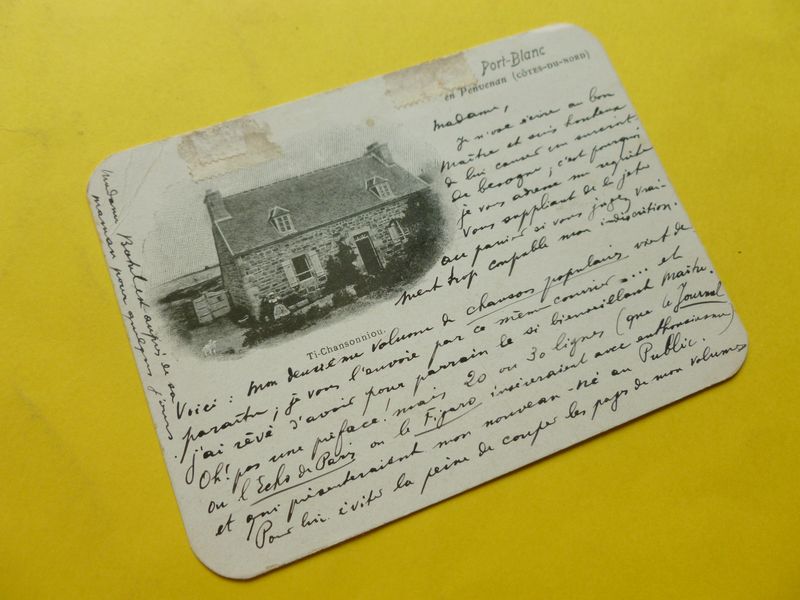 Port-Blanc
en Penvenan (CÔTES-DU-NORD)
Madame,
Je n'ose écrire au bon
Maître et suis honteux
de lui causer un surcroît
de besogne ; c'est pourquoi
je vous adresse ma requête
vous suppliant de la jeter
au panier si vous jugez vrai-
ment trop coupable mon indiscrétion.
Ti-Chansonniou.
Voici : mon deuxième volume de chansons populaires vient de
paraître ; je vous l'envoie par ce même courrier ... et
j'ai rêvé d'avoir pour parrain le si bienveillant Maître.
Oh! pas une préface! mais 20 ou 30 lignes (que le Journal
ou l'Echo de Paris ou le Figaro inséreraient avec enthousiasme)
et qui présenteraient mon nouveau-né au Public.
Pour lui éviter la peine de couper les pages de mon volume
Madame Botrel est auprès de sa
maman pour quelques jours